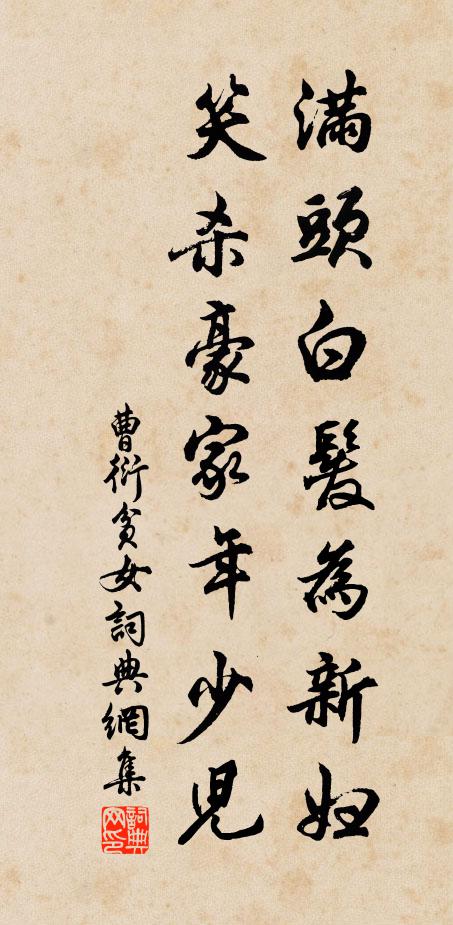 滿頭白髮為新婦
笑杀豪家年少兒
曹衍貧女詞典網集
詞典网印